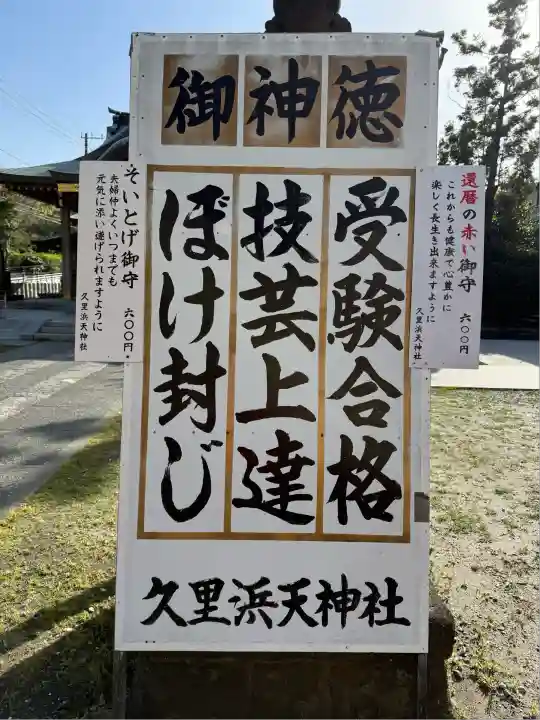 御神徳
受験合格
技芸上達
ぼけ封じ
久里浜天神社
還暦の赤い御守 六〇〇円
これからも健康で心豊かに
楽しく長生き出来ますように
久里浜天神社
そいとげ御守 六〇〇円
夫婦仲よくいつまでも
元気に添い遂げられますように
久里浜天神社